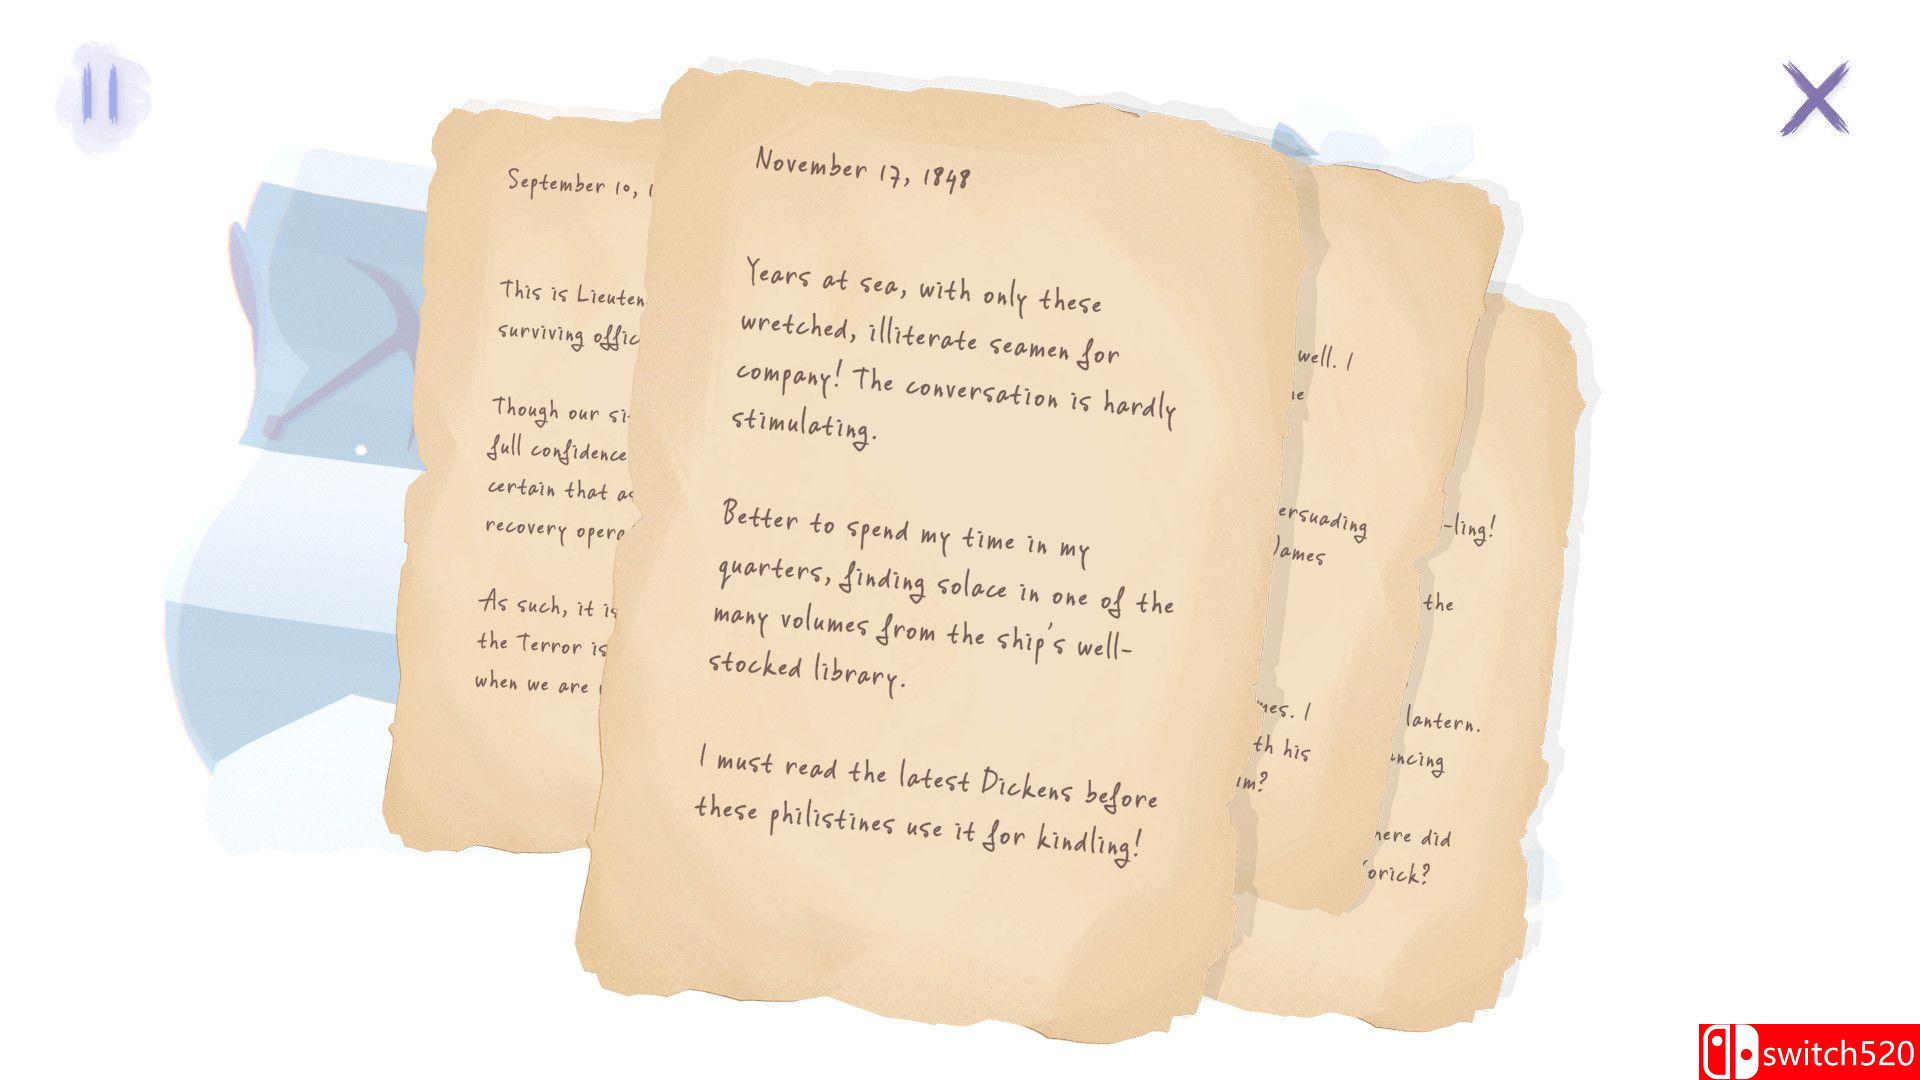 September 10, 1
This is Lieuten
surviving offic
Though our si
full confidence
certain that as
recovery opera
As such, it is
the Terror is
when we are
November 17, 1848
Years at sea, with only these
wretched, illiterate seamen for
company! The conversation is hardly
stimulating.
Better to spend my time in my
quarters, finding solace in one of the
many volumes from the ship's well-
stocked library.
I must read the latest Dickens before
these philistines use it for kindling!
well. I
ersuading
James
mes. I
th his
um?
-ling!
the
lantern.
ncing
here did
Yorick?
switch520